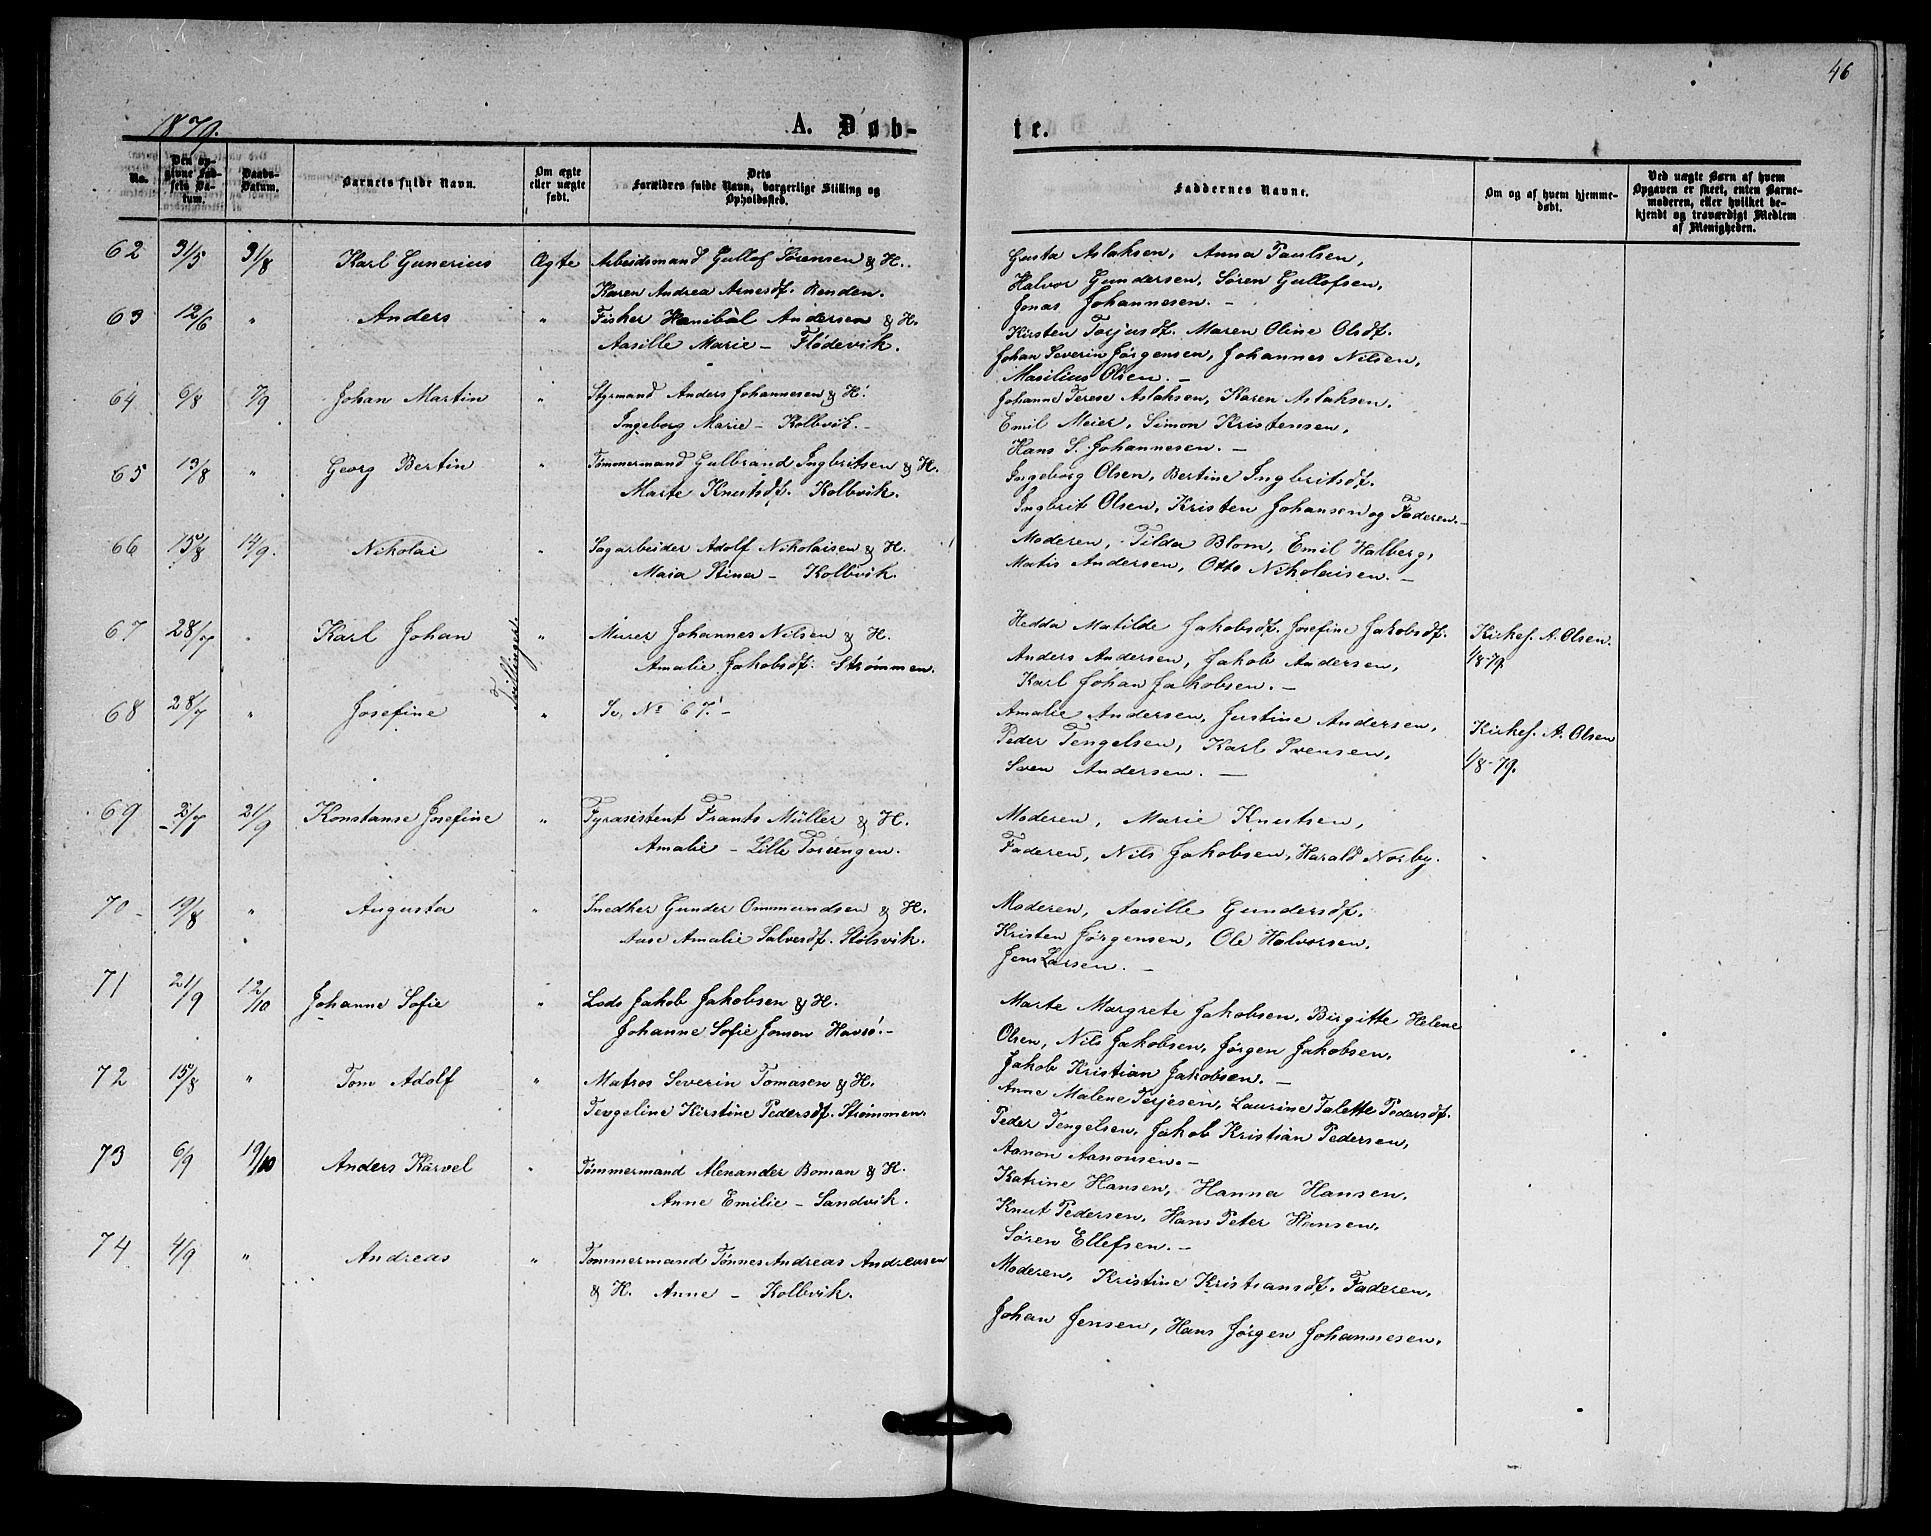 46
1879.
A. Døb-
te.
No.
Den op-
givne Fød-
sels Da-
tum.
Daabs-
Datum.
Barnets fulde Navn.
Om ægte
eller uægte
født.
Dets
Forældres fulde Navn, borgerlige Stilling og
Opholdssted.
Faddernes Navne.
Om og af hvem hjemme-
døbt.
Ved uægte Børn af hvem
Opgaven er skeet, enten Barne-
moderen, eller hvilket be-
kjendt og troværdigt Medlem
af Menigheden.
62 31/5 31/8 Karl Gunerius Ægte Arbeidsmand Gullof Sørensen & H.
Karen Andrea Arnesdf. Renden.
Gusta Aslaksen, Anna Paulsen,
Halvor Gundersen, Søren Gullofsen,
Jonas Johannesen. —
63 12/6 " Anders " Fisher Hanibal Andersen & H.
Aasille Marie — Flødevik.
Kirsten Torjusdf. Maren Oline Olsdf.
Johan Severin Jørgensen, Johannes Nilsen,
Masilius Olsen. —
64 6/8 7/9 Johan Martin " Styrmand Anders Johannesen & H.
Ingeborg Marie — Kolbvik. —
Johanne Terese Aslaksen, Karen Aslaksen,
Emil Meier, Simon Kristensen,
Hans S. Johannesen. —
65 13/8 " Georg Bertin " Tømmermand Gulbrand Ingbritsen & H.
Marte Knutsdf. Kolbvik.
Ingeborg Olsen, Bertine Ingbritsdf.
Ingbrit Olsen, Kristen Johansen og Faderen. —
66 15/8 14/9. Nikolai " Sagarbeider Adolf Nikolaisen & H.
Maia Stina — Kolbvik.
Moderen, Tilda Blom, Emil Halberg,
Matis Andersen, Otto Nikolaisen. —
67 28/7 " Karl Johan Tvillinger " Murer Johannes Nilsen & H.
Amalie Jakobsdf. Strømmen.
Hedda Matilde Jakobsdf. Josefine Jakobsdf.
Anders Andersen, Jakob Andersen,
Karl Johan Jakobsen. —
Kirkes. A. Olsen.
1/8-79.
68 28/7 " Josefine " Se, No 67. —
Amalie Andersen, Justine Andersen,
Peder Tengelsen, Karl Svensen,
Sven Andersen. —
Kirkes. A. Olsen
1/8-79.
69 2/7 21/9 Konstanse Josefine " Fyrasistent Frants Müller & H.
Amalie — Lille Torungen.
Moderen, Marie Knutsen,
Faderen, Nils Jakobsen, Harald Norby.
70 19/8 " Augusta " Snedker Gunder Ommundsen & H.
Aase Amalie Salvesdf. Stølsvik.
Moderen, Aasille Gundersdf.
Kristen Jørgensen, Ole Halvorsen,
Jens Larsen. —
71 21/9 12/10 Johanne Sofie " Lods Jakob Jakobsen & H.
Johanne Sofie Jonsen Havsø. —
Marte Margrete Jakobsen, Birgitte Helene
Olsen, Nils Jakobsen, Jørgen Jakobsen,
Jakob Kristian Jakobsen. —
72 15/8 " Tom Adolf " Matros Severin Tomasen & H.
Tengeline Kirstine Pedersdf. Strømmen.
Anne Malene Terjesen, Laurine Talette Pedersdf.
Peder Tengelsen, Jakob Kristian Pedersen,
Aanon Aanonsen. —
73 6/9 19/10 Anders Karvel " Tømmermand Alexander Boman & H.
Anne Emilie — Sandvik.
Katrine Hansen, Hanna Hansen,
Knut Pedersen, Hans Peter Hansen,
Søren Ellefsen. —
74 4/9 " Andreas " Tømmermand Tønnes Andreas Andersen
& H. Anne — Kolbvik.
Moderen, Kristine Kristiansdf. Faderen,
Johan Jensen, Hans Jørgen Johannesen.